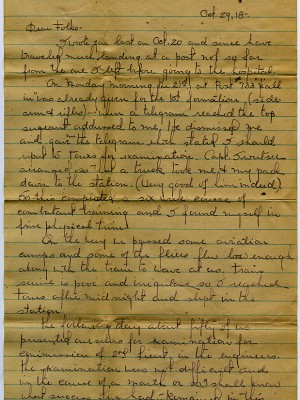 Oct. 29, 18-
Dear Folks-
I wrote you last on Oct. 20 and since have
traveled much landing at a post not so far
from the one I left before going to the hospital.
On Monday morning the 21st, at Post 733 fall
in was already given for the 1st formation (side
arms & rifles) when a telegram reached the top
sergeant addressed to me. He dismissed me
and gave the telegram which stated I should
report to Tours for examination. Capt.
arranged so that a truck took me & my pack
down to the station. (Very good of him indeed)
So this completed a six week course of
combatant training and I found myself in
fine physical trim.
On the way we passed some aviation
camps and some of the fliers flew low enough
along with the train to wave at us. Train
service is poor and irregular so I reached
Tours after midnight and slept in the
station.
The following day about fifty of us
presented ourselves for examination for
commission of 2nd Lieut. in the engineers.
The examination was not difficult and
in the course of a month or so I shall know
what success I've had. Remained in this